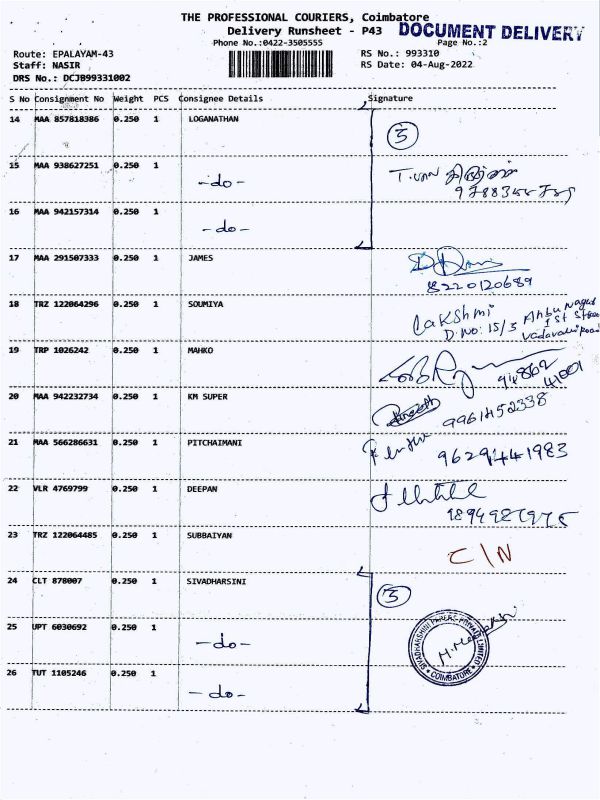 THE PROFESSIONAL COURIERS, Coimbatore
Delivery Runsheet - P43
DOCUMENT DELIVERY
Phone No.:0422-3505555
Page No.:2
Route: EPALAYAM-43
RS No.: 993310
Staff: NASIR
RS Date: 04-Aug-2022
DRS No.: DCJB99331002
S No Consignment No Weight PCS Consignee Details Signature
14 MAA 857818386 0.250 1 LOGANATHAN
5
15 MAA 938627251 0.250 1
-do-
16 MAA 942157314 0.250 1
-do-
17 MAA 291507333 0.250 1 JAMES
8220120689
18 TRZ 122064296 0.250 1 SOUMIYA
Lakshmi
D.No: 15/3
Anbu Nagar
1st Street
Vadavalli Road
19 TRP 1026242 0.250 1 MAHKO
94862
41001
20 MAA 942232734 0.250 1 KM SUPER
9961452338
21 MAA 566286631 0.250 1 PITCHAIMANI
9629441983
22 VLR 4769799 0.250 1 DEEPAN
23 TRZ 122064485 0.250 1 SUBBAIYAN
C/N
24 CLT 878007 0.250 1 SIVADHARSINI
25 UPT 6030692 0.250 1
-do-
26 TUT 1105246 0.250 1
-do-
SIVADHARSHINI PAPERS PRIVATE LIMITED
COIMBATORE